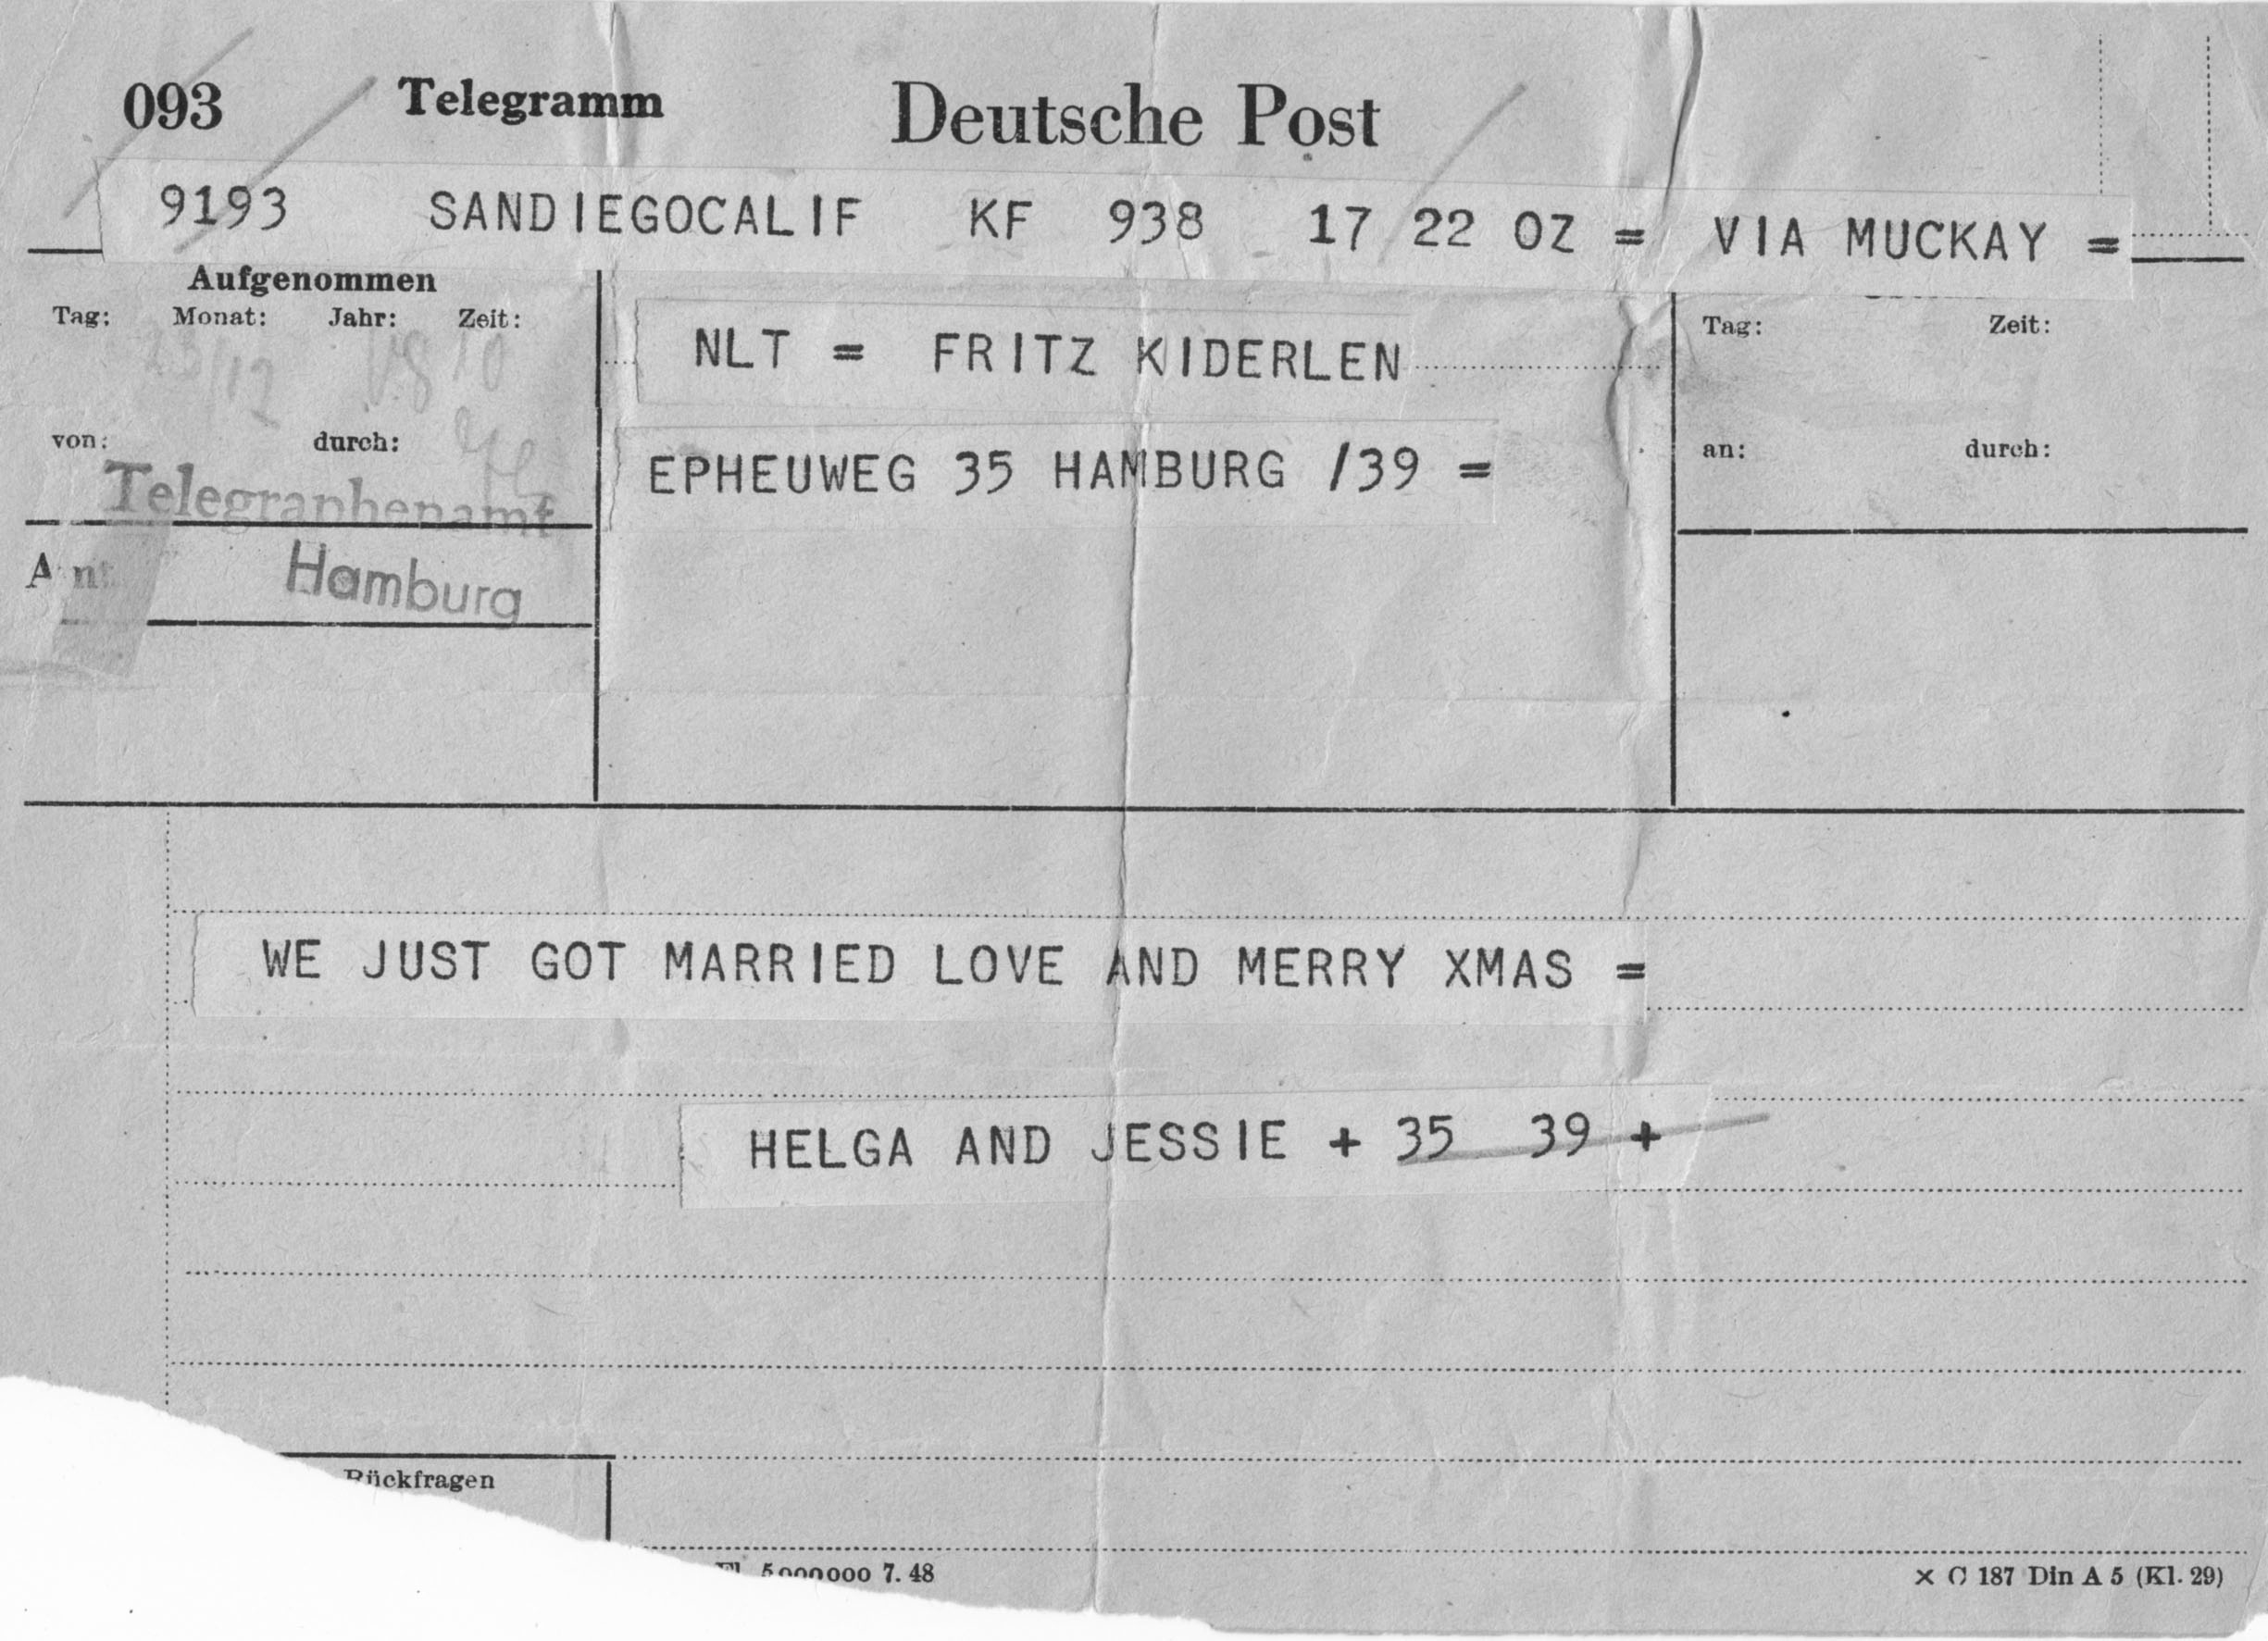 093 Telegramm Deutsche Post
9193 SANDIEGOCALIF KF 938 17 22 OZ = VIA MUCKAY =
Aufgenommen
Tag: Monat: Jahr: Zeit:
NLT = FRITZ KIDERLEN
Tag: Zeit:
von: durch:
EPHEUWEG 35 HAMBURG /39 =
an: durch:
Telegraphenamt
Hamburg
WE JUST GOT MARRIED LOVE AND MERRY XMAS =
HELGA AND JESSIE + 35 39 +
Rückfragen
5000000 7.48
× C 187 Din A 5 (Kl. 29)